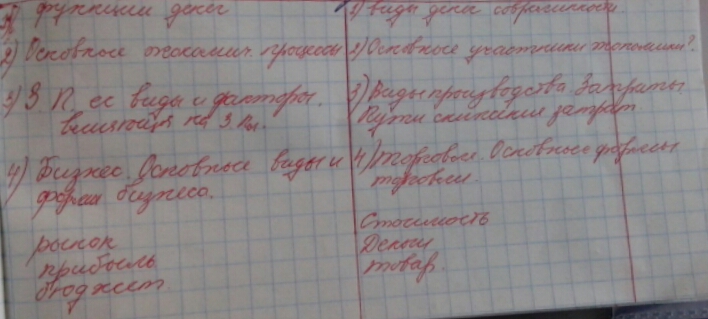 1) функции денег
2) Основные экономич. процессы
3) З. П. ее виды и факторы.
влияющия на З. пл.
4) Бизнес. Основные виды и
формы бизнеса.
рынок
прибыль
бюджет
1) виды денег современности.
2) Основные участники экономики?
3) Виды производства. Затраты
Пути снижения затрат
4) торговля. Основные формы
торговли.
Стоимость
Деньги
товар.